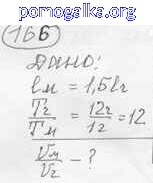 pomogalka.org
166
Дано:
lм = 1,5lг
Tг/Tм = 12г/1г = 12
Vм/Vг - ?